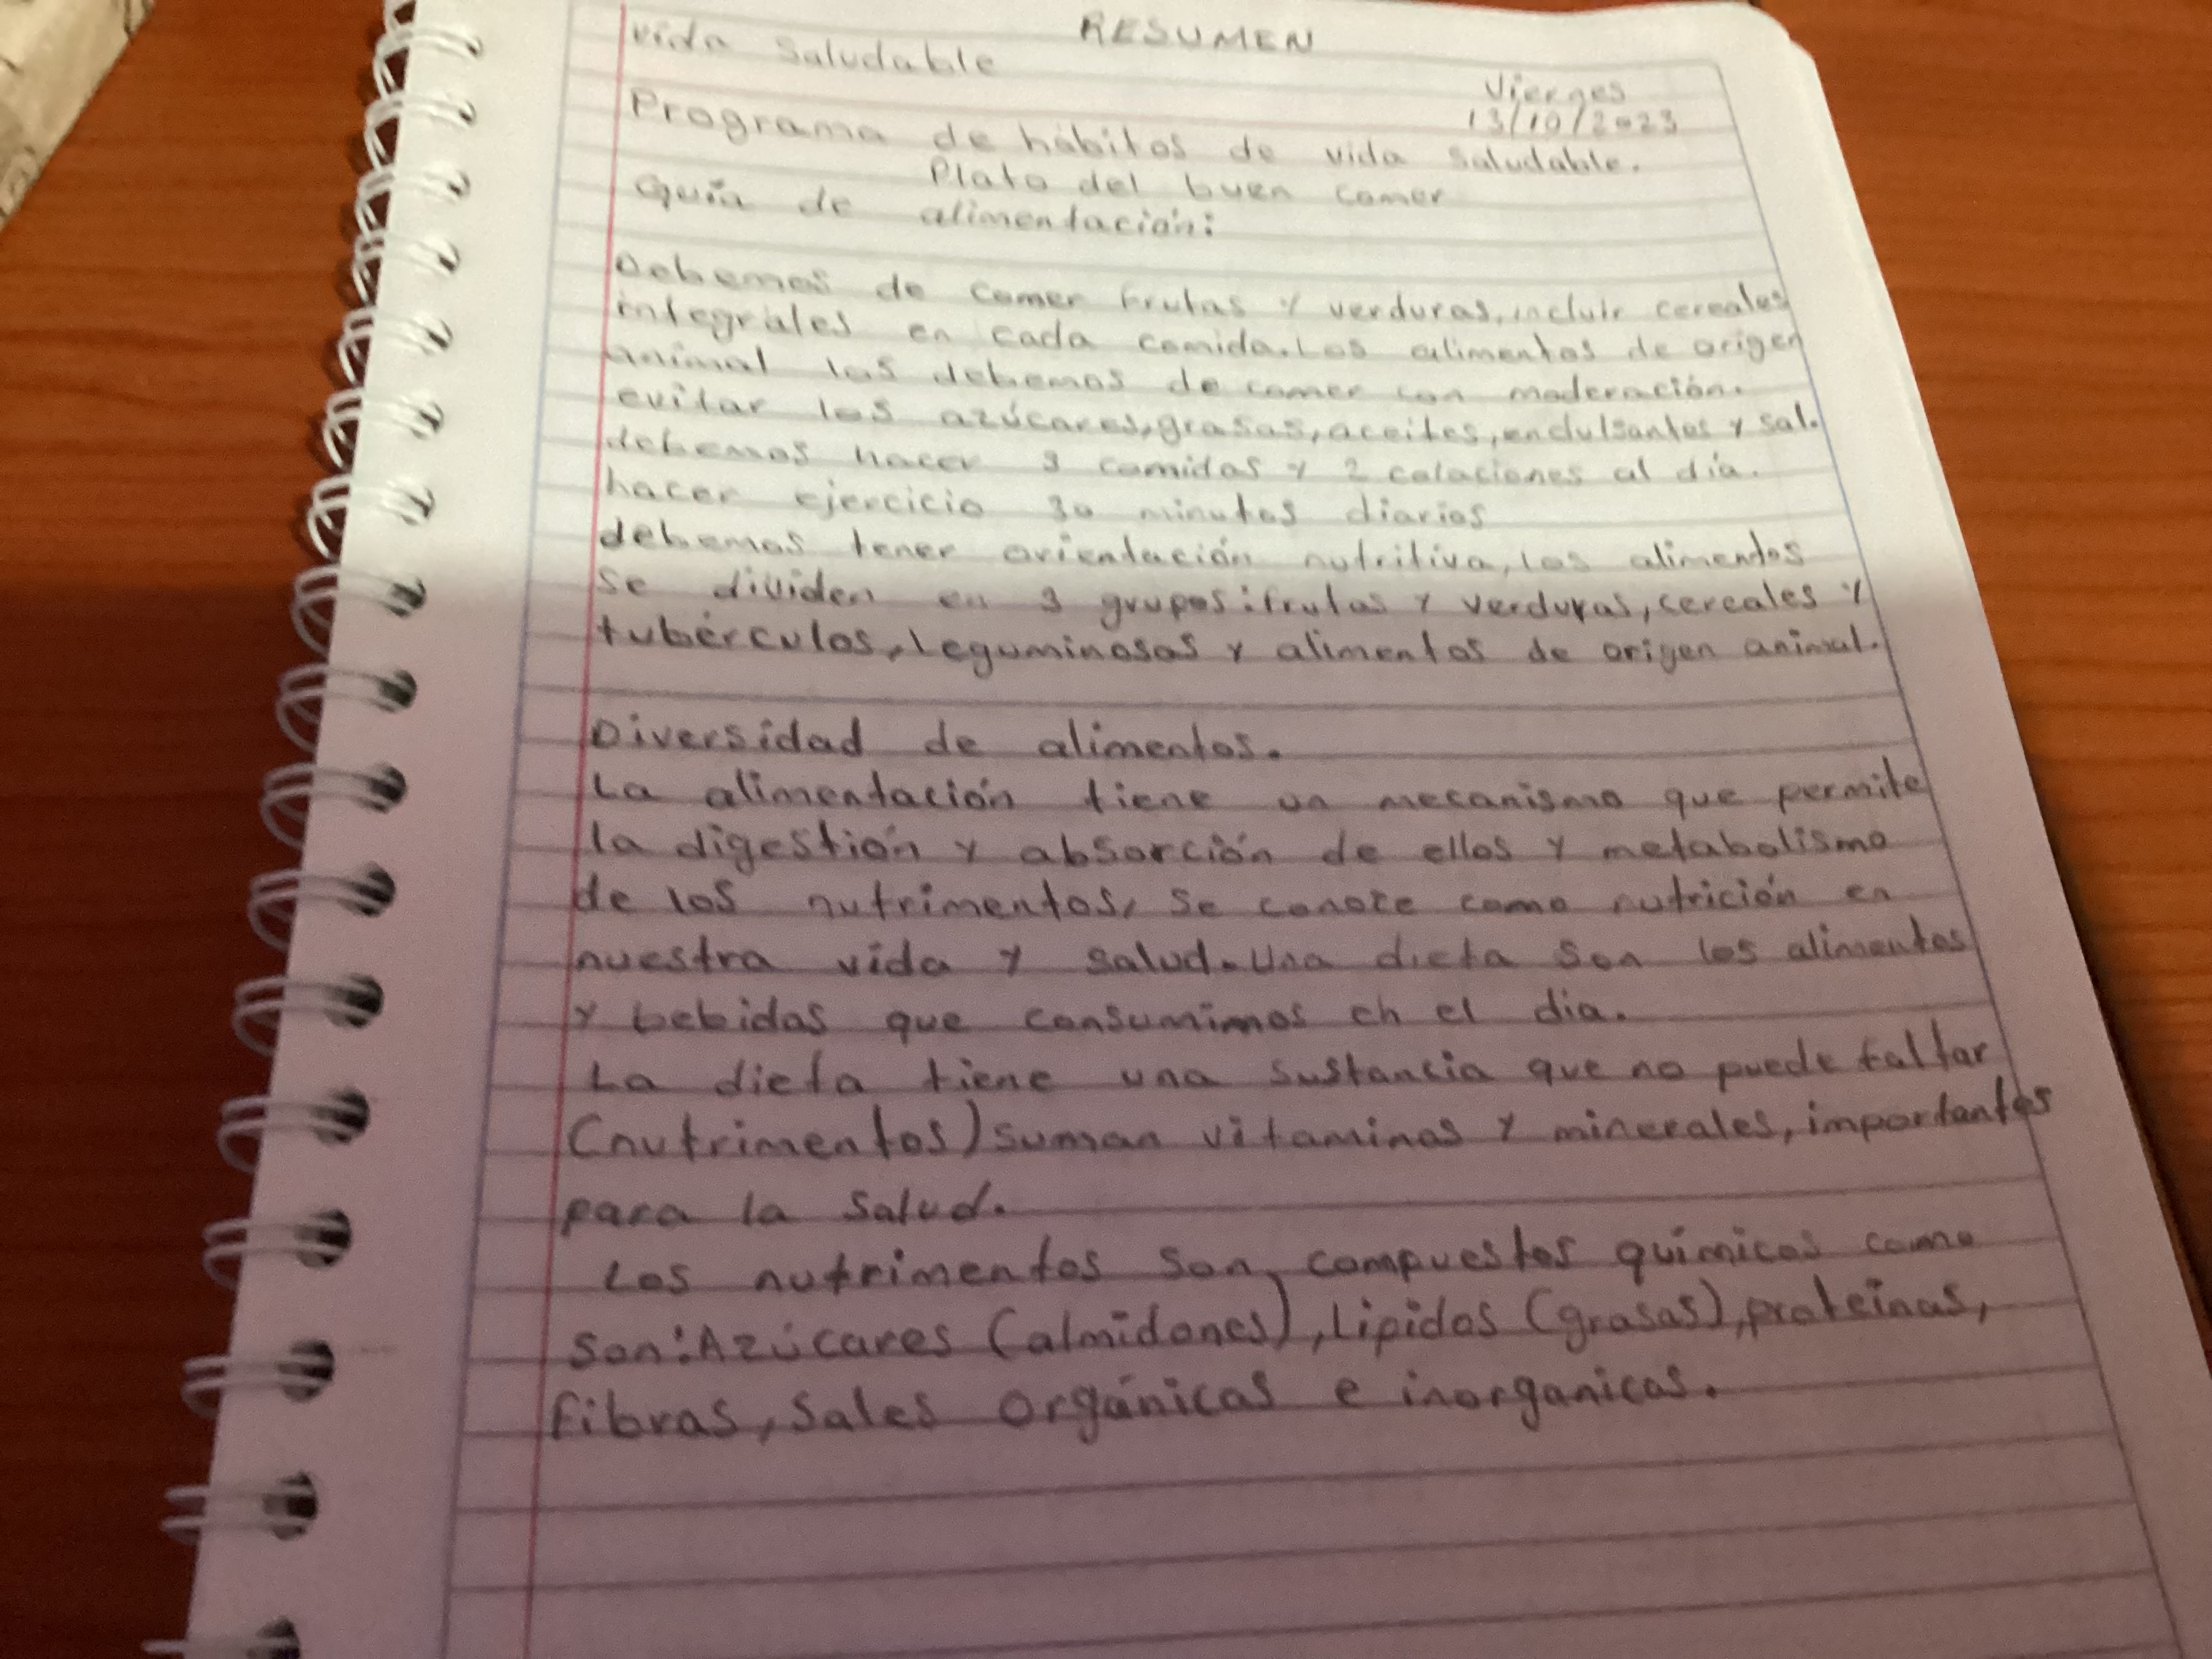 RESUMEN
vida saludable
Viernes
13/10/2023
Programa de hábitos de vida saludable.
Plato del buen comer
Guía de alimentación:
Debemos de comer frutas y verduras, incluir cereales
integrales en cada comida. Los alimentos de origen
animal los debemos de comer con moderación.
evitar los azúcares, grasas, aceites, endulsantes y sal.
debemos hacer 3 comidas y 2 colaciones al día.
hacer ejercicio 30 minutos diarios
debemos tener orientación nutritiva, los alimentos
se dividen en 3 grupos: frutas y verduras, cereales y
tubérculos, leguminosas y alimentos de origen animal.
Diversidad de alimentos.
La alimentación tiene un mecanismo que permite
la digestión y absorción de ellos y metabolismo
de los nutrimentos, se conoce como nutrición en
nuestra vida y salud. Una dieta son los alimentos
y bebidas que consumimos en el dia.
La dieta tiene una sustancia que no puede faltar
(nutrimentos) suman vitaminas y minerales, importantes
para la salud.
Los nutrimentos son compuestos químicos como
son: Azúcares (almidones), Lipidos (grasas), proteínas,
fibras, sales orgánicas e inorganicas.